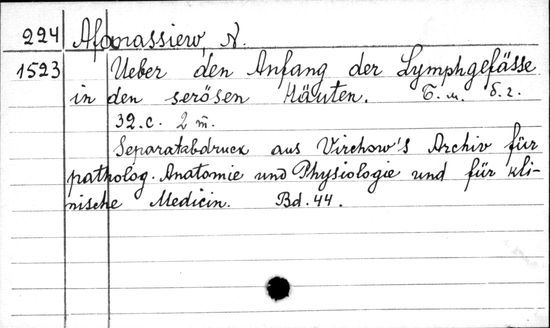 224 Afanassiew, N.
1523 Ueber den Anfang der Lymphgefässe
in den serösen Häuten. Б. м. б. г.
32.c. 2 m̄.
Separatabdruck aus Virchow's Archiv für
patholog. Anatomie und Physiologie und für kli-
nische Medicin. Bd. 44.